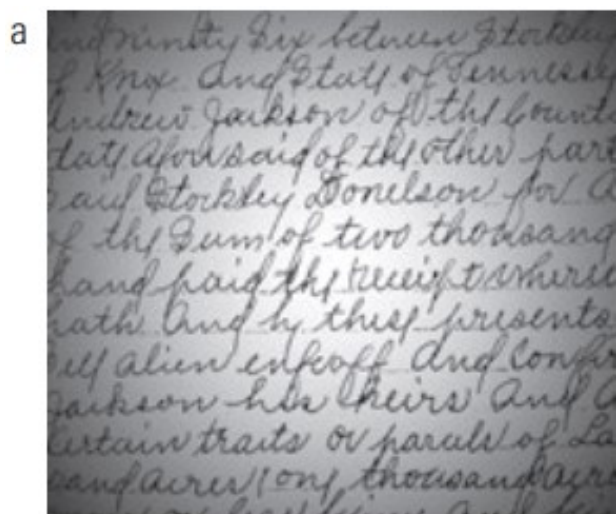 a
ind ninety Six between Stockley
of Knox and State of Tennesse
Andrew Jackson of the Count
tate aforesaid of the other part
said Stockley Donelson for a
of the Sum of two thousand
hand paid the receipt where
hath and by these presents
sell alien enfeoff and Confir
Jackson his heirs and a
certain traits or parcels of La
sand acres one thousand acre